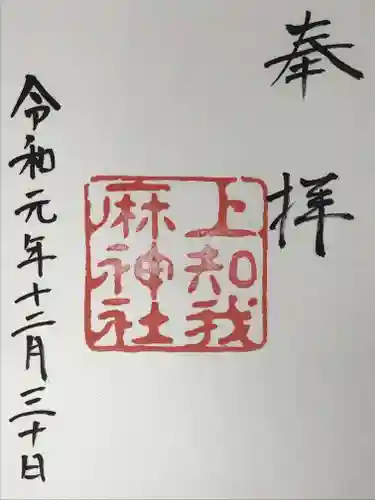 奉拝
上知我
麻神社
令和元年十二月三十日